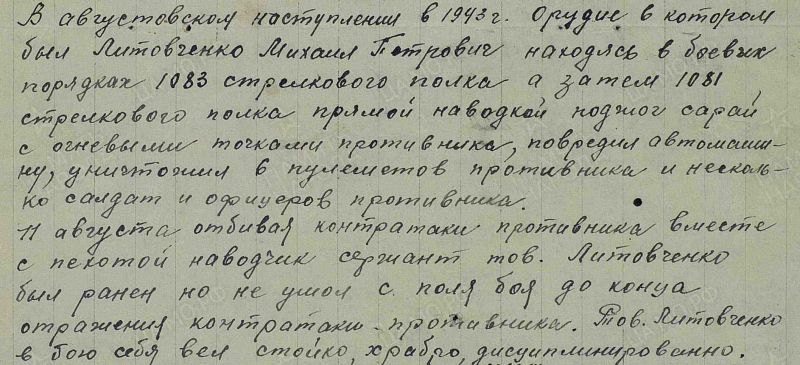 В августовском наступлении в 1943 г. Орудие в котором
был Литовченко Михаил Петрович находясь в боевых
порядках 1083 стрелкового полка а затем 1081
стрелкового полка прямой наводкой поджог сарай
с огневыми точками противника, повредил автомаши-
ну, уничтожил 6 пулеметов противника и несколь-
ко салдат и офицеров противника.
11 августа отбивая контратаки противника вместе
с пехотой наводчик сержант тов. Литовченко
был ранен но не ушол с поля боя до конца
отражения контратаки противника. Тов. Литовченко
в бою себя вел стойко, храбро, дисциплинированно.